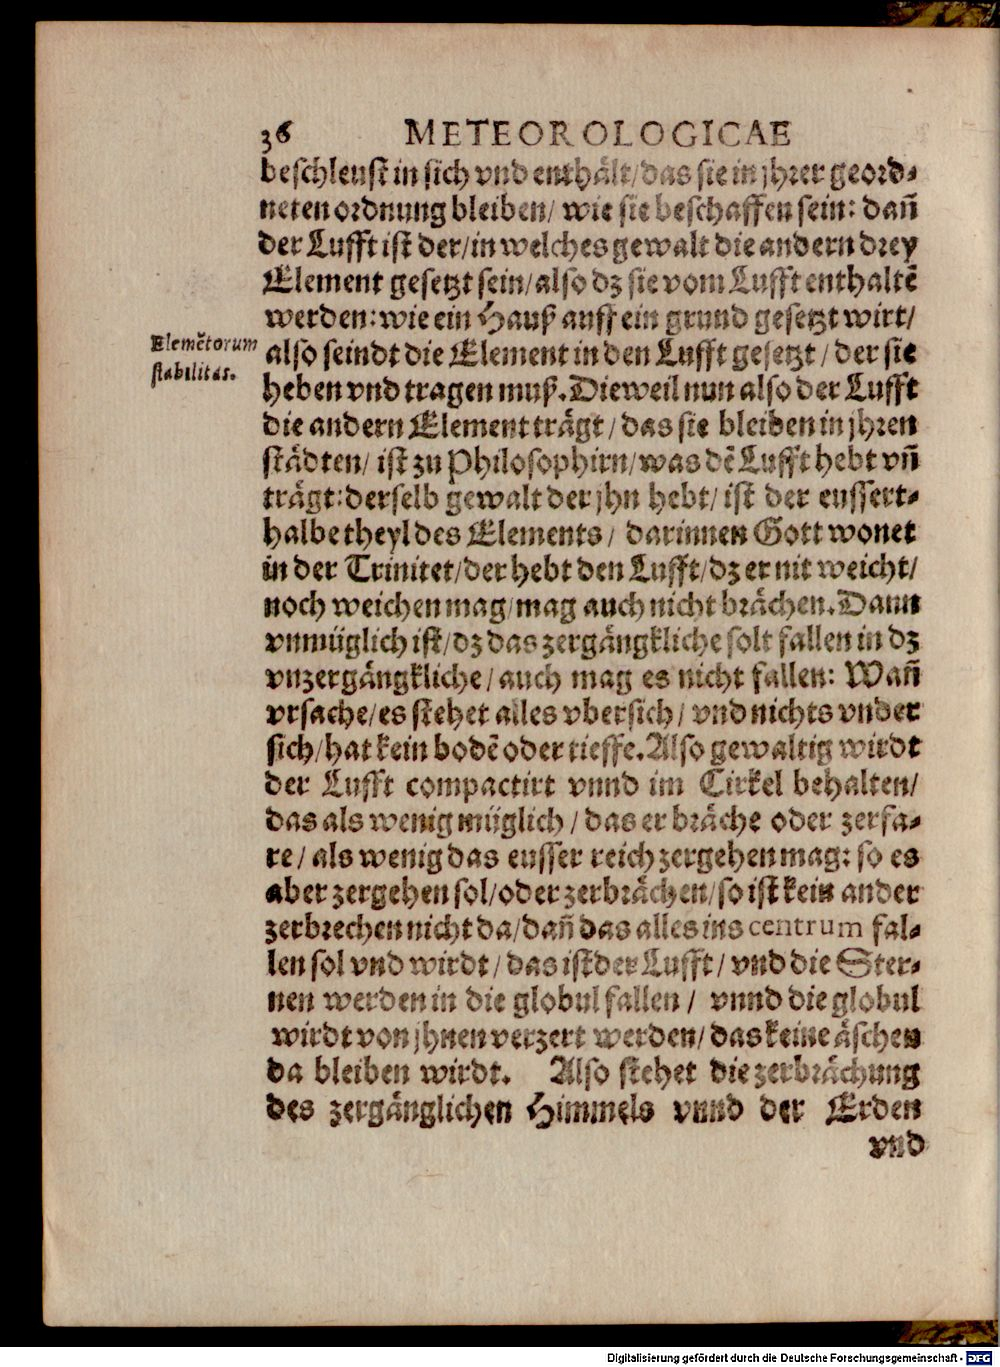 36 METEOROLOGICAE
beschleust in sich vnd enthält/das sie in jhrer geord-
neten ordnung bleiben/ wie sie beschaffen sein: dañ
der Lufft ist der/in welches gewalt die andern drey
Element gesetzt sein/also dz sie vom Lufft enthaltẽ
werden: wie ein Hauß auff ein grund gesetzt wirt/
Elemẽtorum
stabilitas.
also seindt die Element in den Lufft gesetzt/ der sie
heben vnd tragen muß. Dieweil nun also der Lufft
die andern Element trägt/ das sie bleiben in jhren
städten/ ist zu Philosophirn/was dẽ Lufft hebt vñ
trägt: derselb gewalt der jhn hebt/ ist der eussert-
halbe theyl des Elements/ darinnen Gott wonet
in der Trinitet/der hebt den Lufft/dz er nit weicht/
noch weichen mag/mag auch nicht brächen. Dann
vnmüglich ist/dz das zergängkliche solt fallen in dz
vnzergängkliche/auch mag es nicht fallen: Wañ
vrsache/es stehet alles vbersich/ vnd nichts vnder
sich/hat kein bodẽ oder tieffe. Also gewaltig wirdt
der Lufft compactirt vnnd im Cirkel behalten/
das als wenig müglich/das er bräche oder zerfa-
re/als wenig das eusser reich zergehen mag: so es
aber zergehen sol/oder zerbrächen/so ist kein ander
zerbrechen nicht da/dañ das alles ins centrum fal-
len sol vnd wirdt/das ist der Lufft/ vnd die Ster-
nen werden in die globul fallen/ vnnd die globul
wirdt von jhnen verzert werden/das keine äschen
da bleiben wirdt. Also stehet die zerbrächung
des zergänglichen Himmels vnnd der Erden
vnd
Digitalisierung gefördert durch die Deutsche Forschungsgemeinschaft - DFG